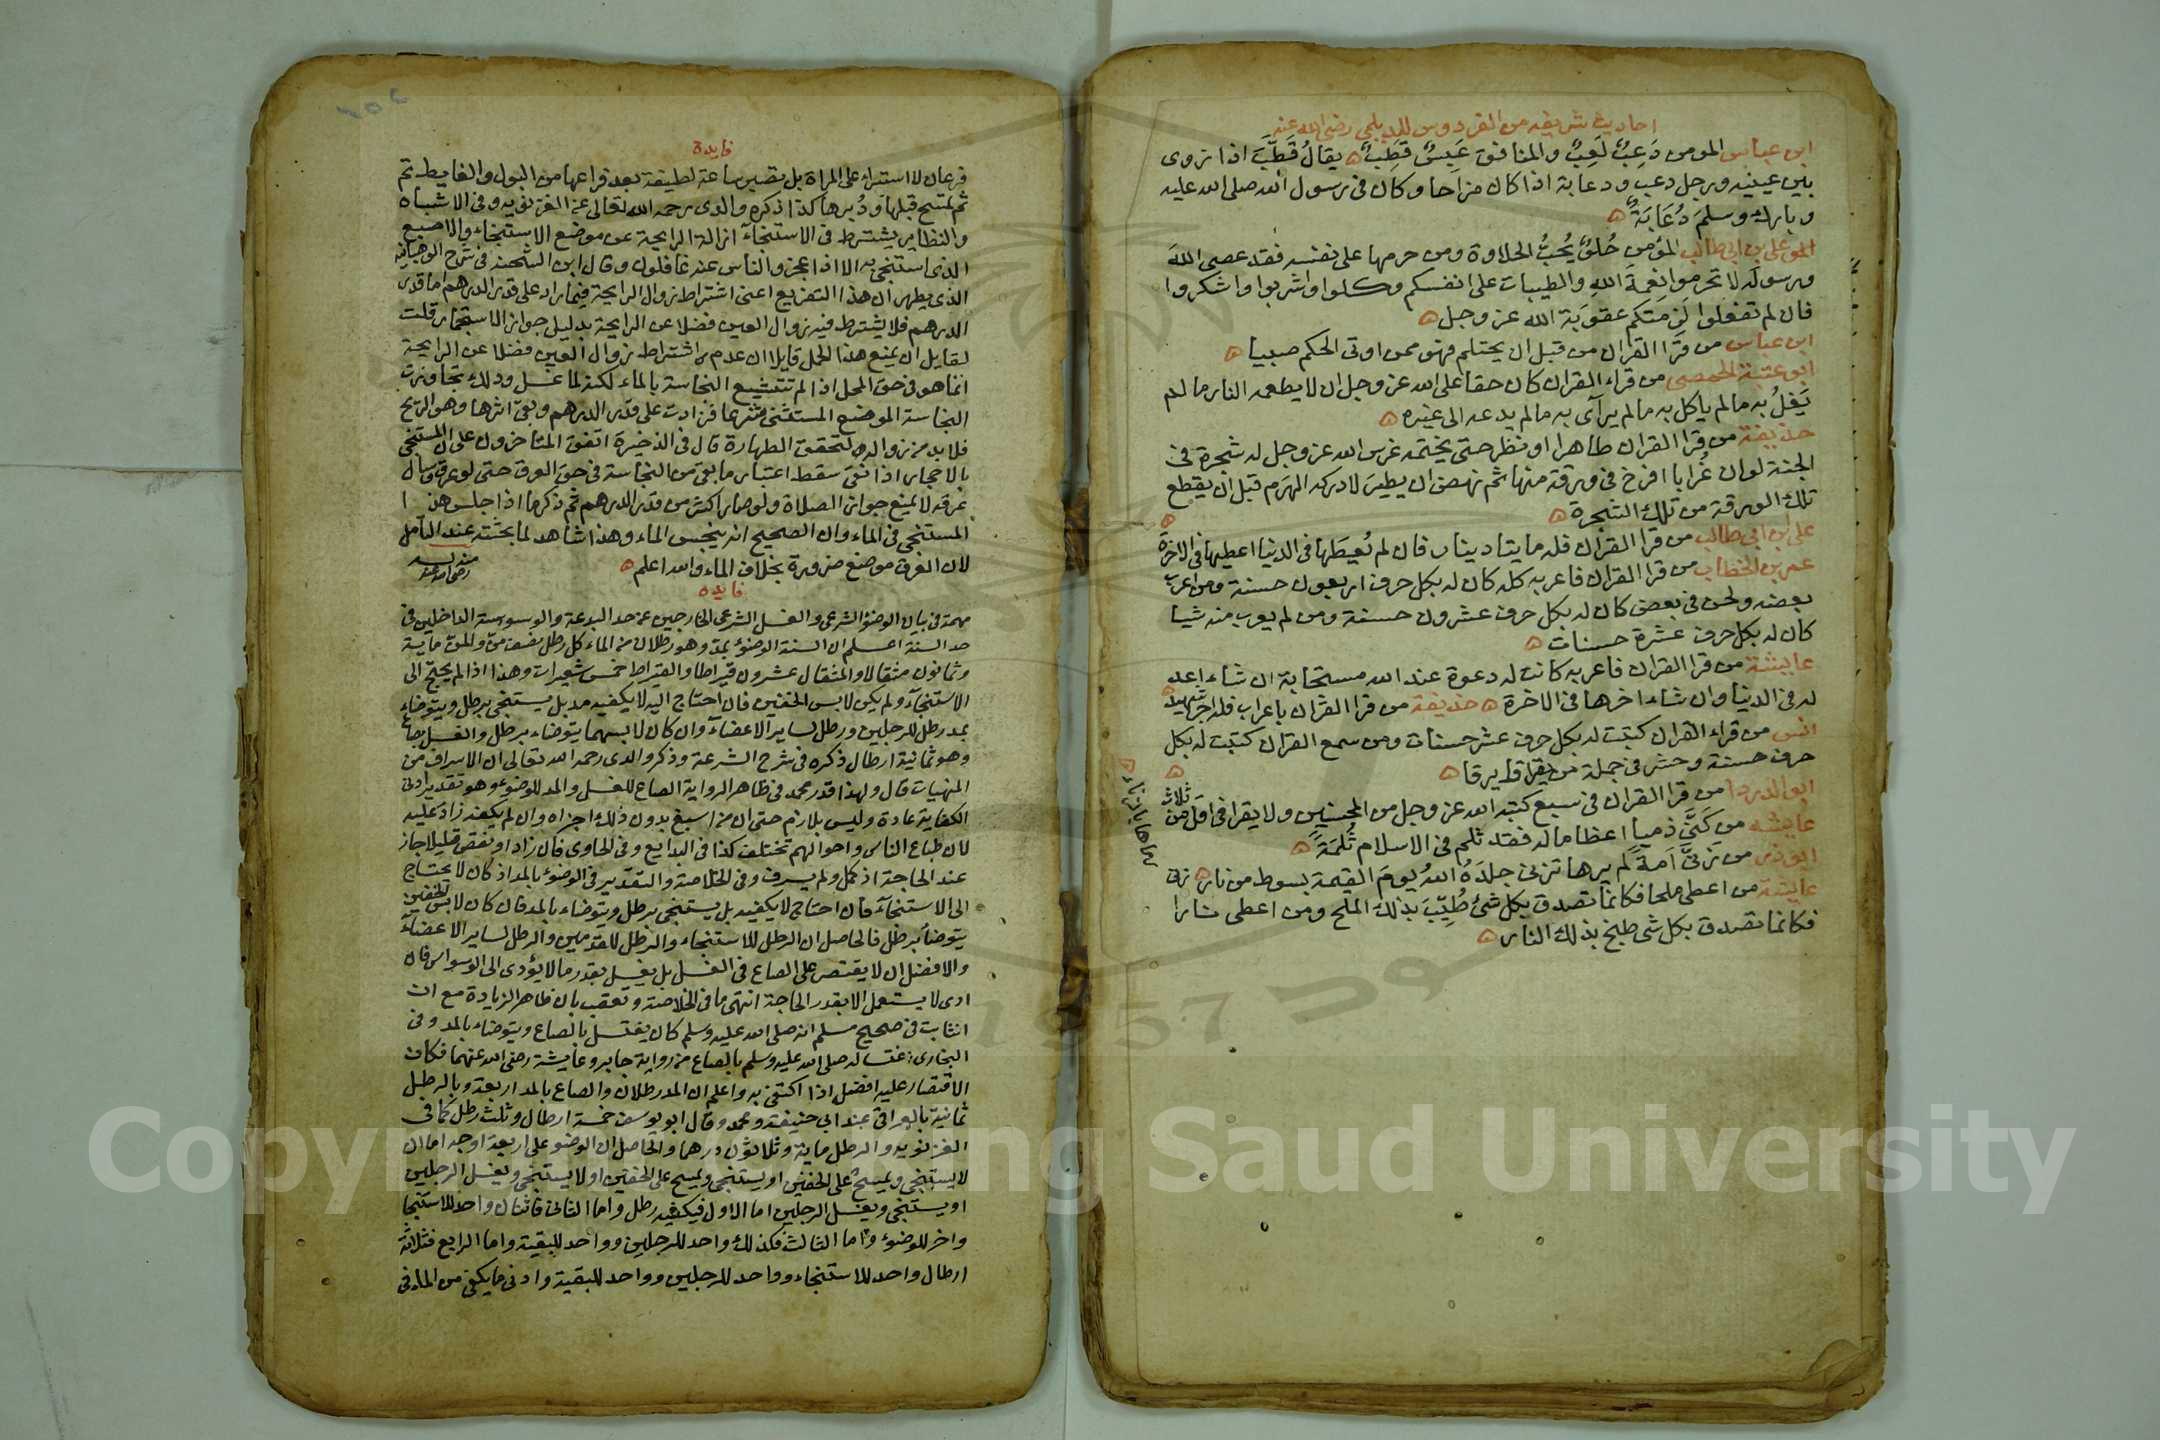 احاديث شريفه من الفردوس للديلمي رضي الله عنه
ابن عباس المومن دَعِبٌ لَعِبٌ والمنافق عَبِسٌ قَطِبٌ يقالُ قَطَّبَ اذا زوى
بين عينيه ورجل دعب ودعابة اذا كان مزاحا وكان في رسول الله صلى الله عليه
وبارك وسلم دُعَابَةٌ
علي بن ابي طالب المؤمن حُلوٌ يُحبُّ الحلاوة ومن حرمها على نفسه فقد عصى اللهَ
ورسولَه لا تحرموا نعمةَ اللهِ والطيبات على انفسكم وكلوا واشربوا واشكروا
فان لم تفعلوا لَزِمَتكم عقوبَة الله عز وجل
ابن عباس من قَرَا القران من قبل ان يحتلم فهو ممن اوتى الحكم صبيا
ابو عتبة الحمصى من قراء القران كان حقا على الله عز وجل ان لا يطعمه النار ما لم
يَغلُ به ما لم ياكل به ما لم يرآى به ما لم يدعه الى غيره
حذيفة من قرا القران ظاهرا او نظرا حتى يختمه غرس الله عز وجل له شجرة في
الجنة لو ان غُرابا افرخ في ورقة منها ثم نهض ان يطير لادركه الهرم قبل ان يقطع
تلك الورقة من تلك الشجرة
علي ابن ابي طالب من قرا القران فله مايتا دينار فان لم يُعطَها في الدنيا اعطيها في الاخرة
عمر بن الخطاب من قرا القران فاعربه كله كان له بكل حرف اربعون حسنة ومن اعرب
بعضه ولحن في بعض كان له بكل حرف عشرون حسنة ومن لم يعرب منه شيا
كان له بكل حرف عشرة حسنات
عايشة من قرا القران فاعربه كانت له دعوة عند الله مستجابة ان شاء اعد
له في الدنيا وان شاء اخرها في الاخرة حذيفة من قرا القران باعراب فله اجر شهيد
انس من قراء القران كتبت له بكل حرف عشر حسنات ومن سمع القران كتبت له بكل
حرف حسنة وحشر في جملة من يقرا ويرقا
ابو الدردا من قرا القران في سبع كتبه الله عز وجل من المحسنين ولا يقرا في اقل من ثلاث
عايشه من كَنَّى ذميا اعظاما له فقد ثلم في الاسلام ثُلمَةً
ابو ذر من زنَّى اَمةً لم يرها تزني جلدَهُ اللهُ يومَ القيمة بسوط من نار
عايشة من اعطى ملحا فكانما تصدق بكل شئ طُيِّبَ بذلك الملح ومن اعطى نارا
فكانما تصدق بكل شى طبخ بذلك النار
فايدة
فرعان لا استبراء على المراة بل تصبر ساعة لطيفة بعد فراغها من البول والغايط ثم
ثم تمسح قبلها ودُبرها كذا ذكره والدى رحمه الله تعالى عن الغزنويه وفي الاشباه
والنظاير يشترط في الاستنجآ ازالة الرايحة عن موضع الاستنجاء والاصبع
الذى استنجى به الا اذا عجز والناس عنه غافلون وقال ابن الشحنه في شرح الوهبانيه
الذي يظهر ان هذا التفريع اعنى اشتراط زوال الرايحة فيما زاد على قدر الدرهم اما قدر
الدرهم فلا يشترط فيه زوال العين فضلا عن الرايحة بدليل جواز الاستجمار قلت
لقايل ان يمنع هذا الحمل قايلا ان عدم اشتراط زوال العين فضلا عن الرايحة
انما هو في حق المحل اذا لم تتشيع النجاسة بالماء لكنه لما غسل وذلك تجاوزت
النجاسة الموضع المستثنى شرعا فزادت على قدر الدرهم وبقى اثرها وهو الريح
فلا بد من زواله لتحقق الطهارة قال في الذخيرة اتفق المتاخرون على ان المستنجى
بالاحجار اذا نقى سقط اعتبار ما بقى من النجاسة في حق العرق حتى لو عرق وسال
عرقه لا يمنع جواز الصلاة ولو صار اكثر من قدر الدرهم ثم ذكر ما اذا جلس هذا
المستنجى في الماء وان الصحيح انه ينجس الماء وهذا شاهد لما بحثته عند التامل
لان العرق موضع ضرورة بخلاف الماء والله اعلم
فايده
مهمة في بيان الوضؤ الشرعى والغسل الشرعى الخارجين عن حد البدعة والوسوسة الداخلين في
حد السنة اعلم ان السنة الوضوء بمد وهو رطلان من الماء كل رطل نصف من والمن ماية
وثمانون مثقالا والمثقال عشرون قيراطا والقيراط خمس شعيرات وهذا اذا لم يحتج الى
الاستنجآء ولم يكن لابس الخفين فان احتاج اليه لا يكفيه مد بل يستنجى برطل ويتوضاء
بمد رطل للرجلين ورطل لساير الاعضاء وان كان لابسهما يتوضاء برطل والغسل بصاع
وهو ثمانية ارطال ذكره في شرح الشرعة وذكر والدى رحمه الله تعالى ان الاسراف من
المنهيات قال ولهذا قدر محمد في ظاهر الرواية الصاع للغسل والمد للوضوء وهو تقدير ادنى
الكفاية عادة وليس بلازم حتى ان من اسبغ بدون ذلك اجزاه وان لم يكفه زاد عليه
لان طباع الناس واحوالهم تختلف كذا في البدايع وفي الحاوى فان زاد او نقص قليلا جاز
عند الحاجة اذ كمل ولم يسرف وفي الخلاصة والتقدير في الوضوء بالمد اذ كان لا يحتاج
الى الاستنجآء فان احتاج لا يكفيه بل يستنجى برطل ويتوضاء بالمد فان كان لابس الخفين
يتوضأ برطل فالحاصل ان الرطل للاستنجاء والرطل للقدمين والرطل لساير الاعضاء
والافضل ان لا يقتصر على الصاع في الغسل بل يغسل بقدر ما لا يؤدى الى الوسواس فان
ادى لا يستعمل الا بقدر الحاجة انتهى ما في الخلاصة وتعقب بان ظاهر الزيادة مع ان
الثابت في صحيح مسلم انه صلى الله عليه وسلم كان يغتسل بالصاع ويتوضاء بالمد وفي
البخارى غسله صلى الله عليه وسلم بالصاع من رواية جابر وعايشة رضى الله عنهما فكان
الاقتصار عليه افضل اذا اكتفى به واعلم ان المد رطلان والصاع بالمد اربعة وبالرطل
ثمانية بالعراقى عند ابي حنيفة ومحمد وقال ابو يوسف خمسة ارطال وثلث رطل كما في
الغزنويه والرطل ماية وثلاثون درهما والحاصل ان الوضو على اربعة اوجه اما ان
لا يستنجى ويمسح على الخفين او يستنجى ويمسح على الخفين او لا يستنجى ويغسل الرجلين
او يستنجى ويغسل الرجلين اما الاول فيكفيه رطل واما الثانى فاثنان واحد للاستنجا
واخر للوضوء واما الثالث فكذلك واحد للرجلين وواحد للبقية واما الرابع فثلاثة
ارطال واحد للاستنجاء وواحد للرجلين وواحد للبقية وادنى ما يكفى من الماء في
Copyright © King Saud University
1957